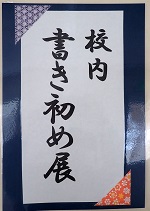 校内
書き初め展